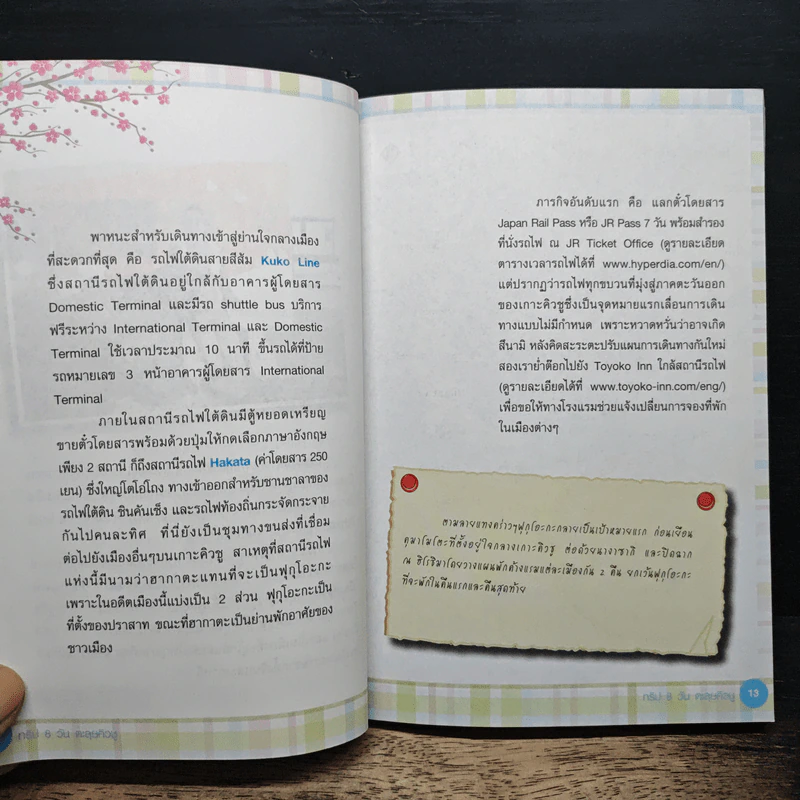 พาหนะสำหรับเดินทางเข้าสู่ย่านใจกลางเมือง
ที่สะดวกที่สุด คือ รถไฟใต้ดินสายสีส้ม Kuko Line
ซึ่งสถานีรถไฟใต้ดินอยู่ใกล้กับอาคารผู้โดยสาร
Domestic Terminal และมีรถ shuttle bus บริการ
ฟรีระหว่าง International Terminal และ Domestic
Terminal ใช้เวลาประมาณ 10 นาที ขึ้นรถได้ที่ป้าย
รถหมายเลข 3 หน้าอาคารผู้โดยสาร International
Terminal
ภายในสถานีรถไฟใต้ดินมีตู้หยอดเหรียญ
ขายตั๋วโดยสารพร้อมด้วยปุ่มให้กดเลือกภาษาอังกฤษ
เพียง 2 สถานี ก็ถึงสถานีรถไฟ Hakata (ค่าโดยสาร 250
เยน) ซึ่งใหญ่โตโอ่โถง ทางเข้าออกสำหรับชานชาลาของ
รถไฟใต้ดิน ชินคันเซ็ง และรถไฟท้องถิ่นกระจัดกระจาย
กันไปคนละทิศ ที่นี่ยังเป็นชุมทางขนส่งที่เชื่อม
ต่อไปยังเมืองอื่นๆบนเกาะคิวชู สาเหตุที่สถานีรถไฟ
แห่งนี้มีนามว่าฮากาตะแทนที่จะเป็นฟุกุโอะกะ
เพราะในอดีตเมืองนี้แบ่งเป็น 2 ส่วน ฟุกุโอะกะเป็น
ที่ตั้งของปราสาท ขณะที่ฮากาตะเป็นย่านพักอาศัยของ
ชาวเมือง
ทริป 8 วัน ตะลุยคิวชู
ภารกิจอันดับแรก คือ แลกตั๋วโดยสาร
Japan Rail Pass หรือ JR Pass 7 วัน พร้อมสำรอง
ที่นั่งรถไฟ ณ JR Ticket Office (ดูรายละเอียด
ตารางเวลารถไฟได้ที่ www.hyperdia.com/en/)
แต่ปรากฏว่ารถไฟทุกขบวนที่มุ่งสู่ภาคตะวันออก
ของเกาะคิวชูซึ่งเป็นจุดหมายแรกเลื่อนการเดิน
ทางแบบไม่มีกำหนด เพราะหวาดหวั่นว่าอาจเกิด
สึนามิ หลังคิดสะระตะปรับแผนการเดินทางกันใหม่
สองเราย่ำต๊อกไปยัง Toyoko Inn ใกล้สถานีรถไฟ
(ดูรายละเอียดได้ที่ www.toyoko-inn.com/eng/)
เพื่อขอให้ทางโรงแรมช่วยแจ้งเปลี่ยนการจองที่พัก
ในเมืองต่างๆ
ตามลายแทงคร่าวๆฟุกุโอะกะกลายเป็นเป้าหมายแรก ก่อนเยือน
คุมาโมโตะที่ตั้งอยู่ใจกลางเกาะคิวชู ต่อด้วยนางาซากิ และปิดฉาก
ณ ฮิโรชิมาโดยวางแผนพักค้างแรมแต่ละเมืองกัน 2 คืน ยกเว้นฟุกุโอะกะ
ที่จะพักในคืนแรกและคืนสุดท้าย
ทริป 8 วัน ตะลุยคิวชู 13